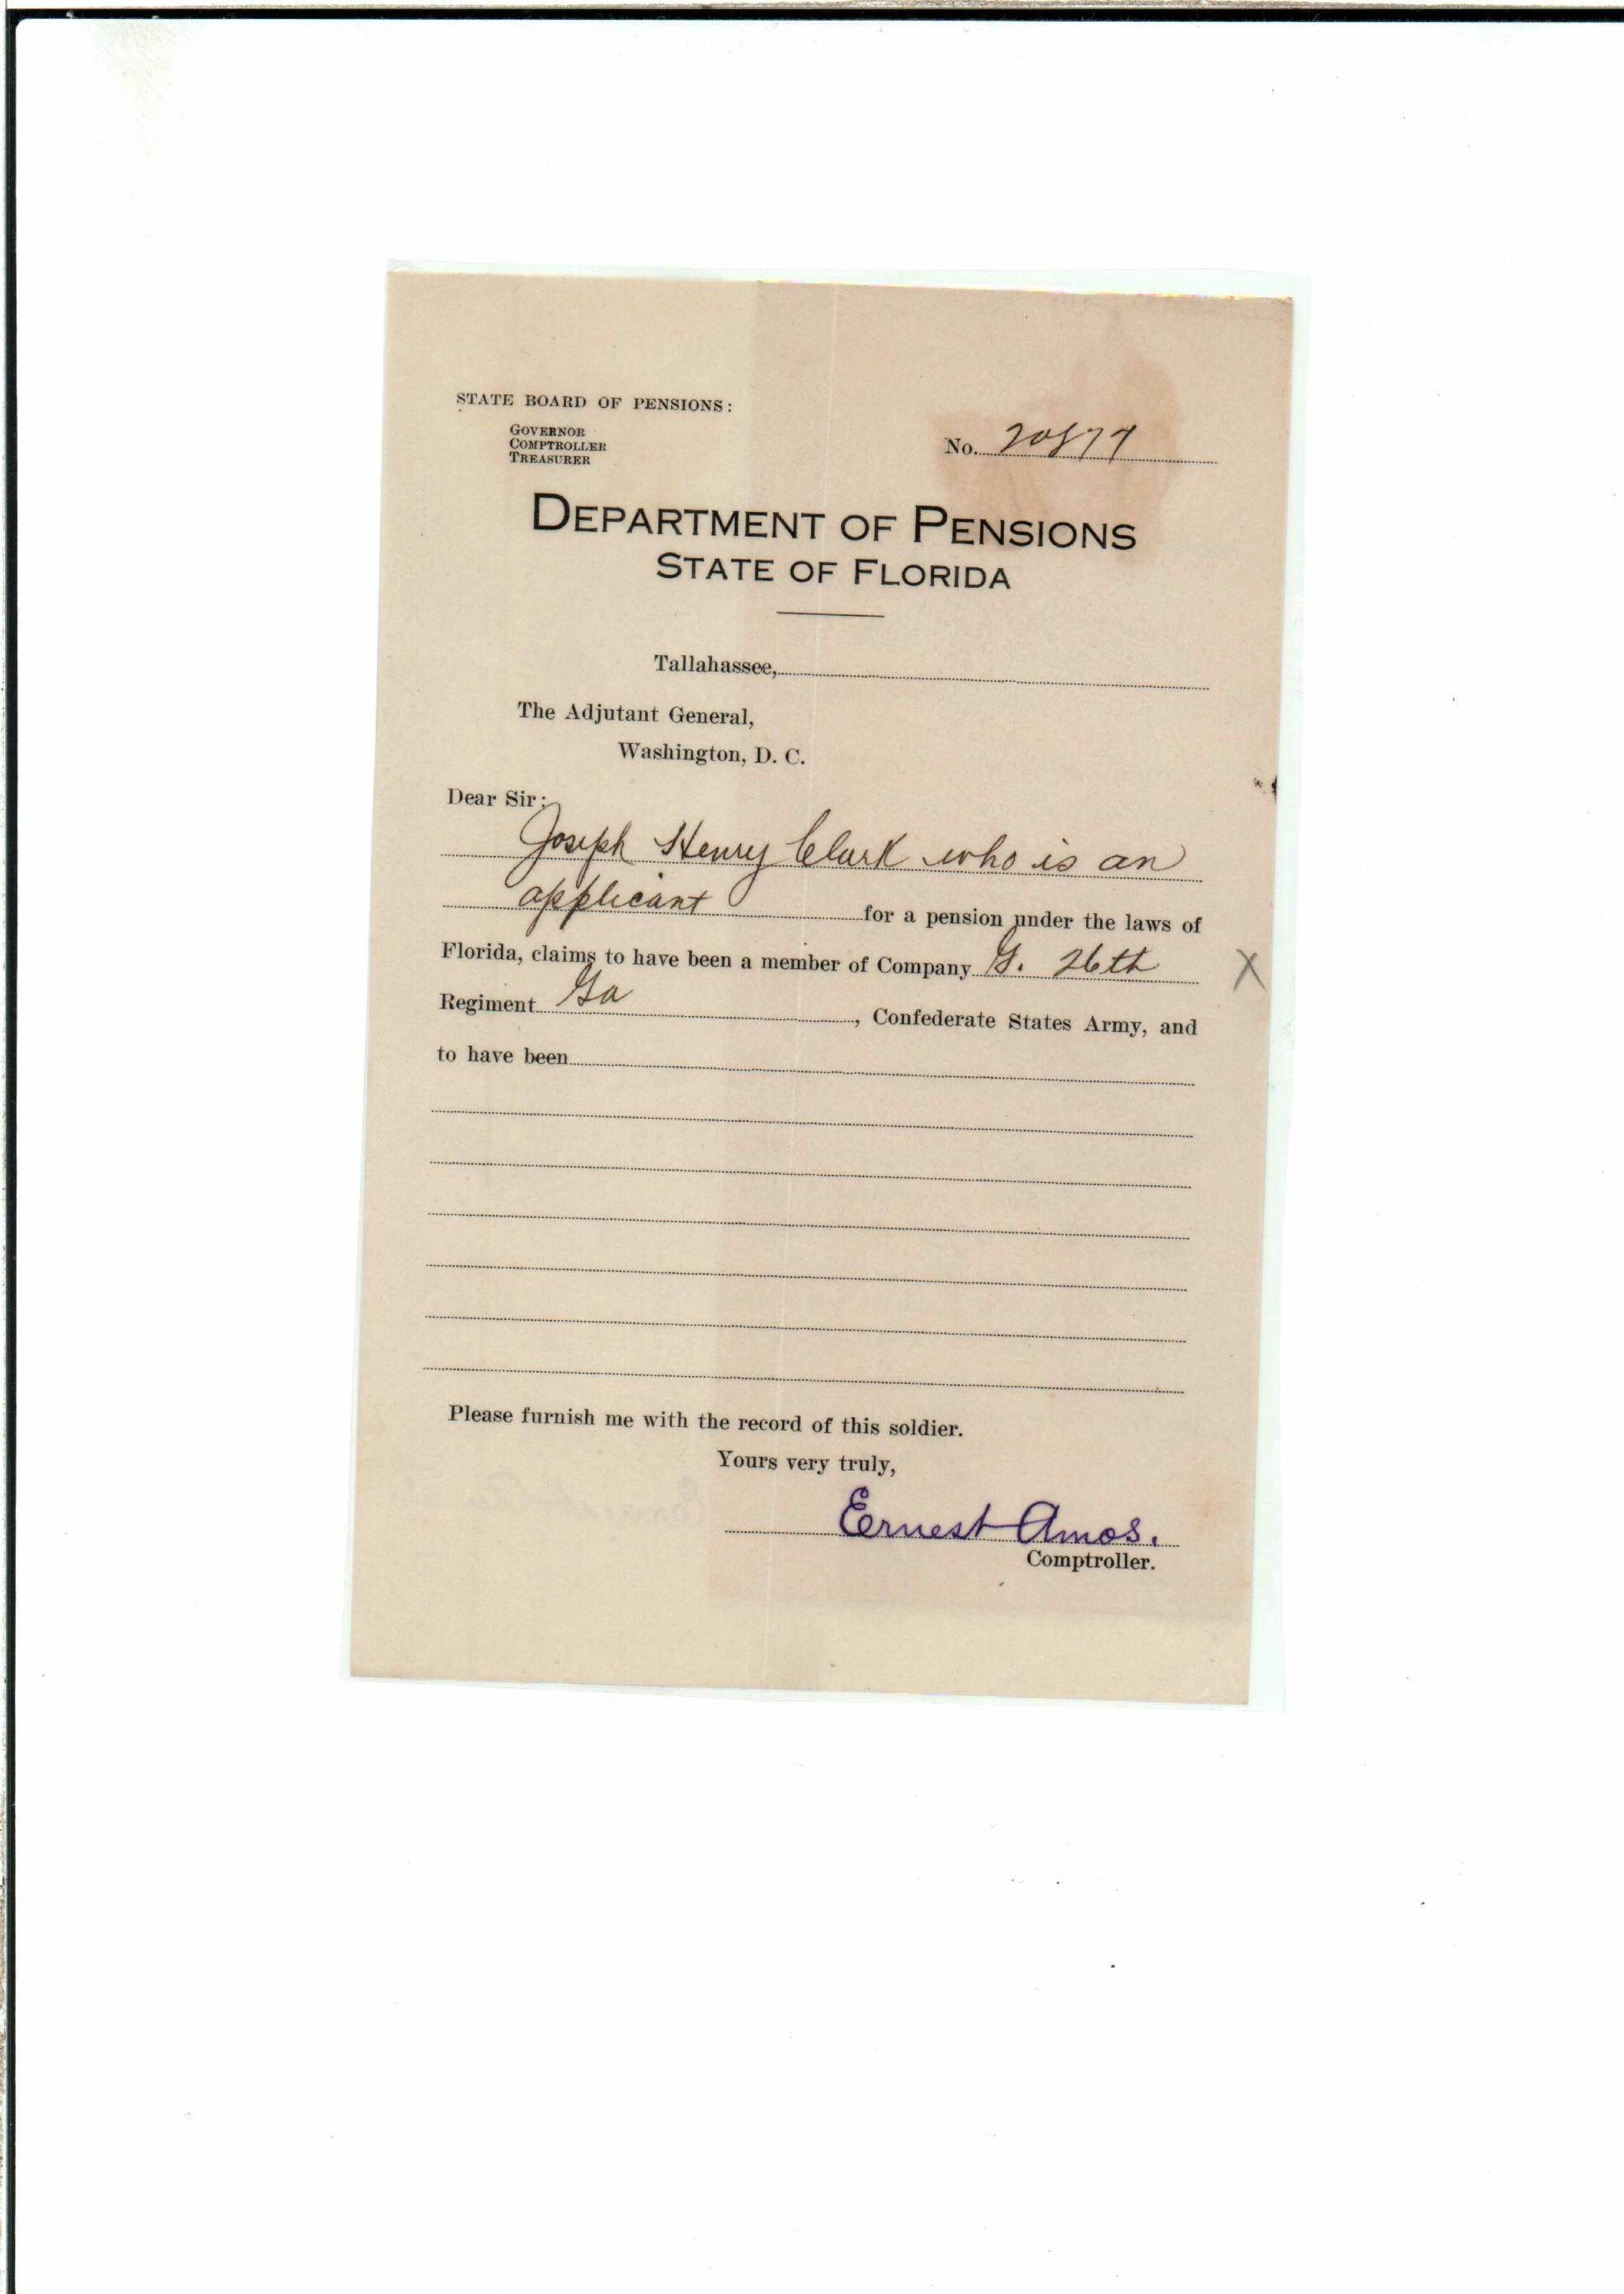 STATE BOARD OF PENSIONS:
GOVERNOR
COMPTROLLER
TREASURER
No.
DEPARTMENT OF PENSIONS
STATE OF FLORIDA
Tallahassee,
The Adjutant General,
Washington, D. C.
Dear Sir:
Joseph Henry Clark who is an
applicant for a pension under the laws of
Florida, claims to have been a member of Company G. 26th X
Regiment Ga, Confederate States Army, and
to have been
Please furnish me with the record of this soldier.
Yours very truly,
Ernest Amos.
Comptroller.